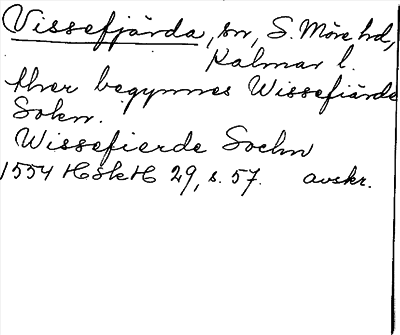 Vissefjärda, sn, S. Möre hd,
Kalmar l.
Her begynnes Wissefiärde
Sokn.
Wissefierde Sochn
1554 HSkH 29, s. 57. avskr.